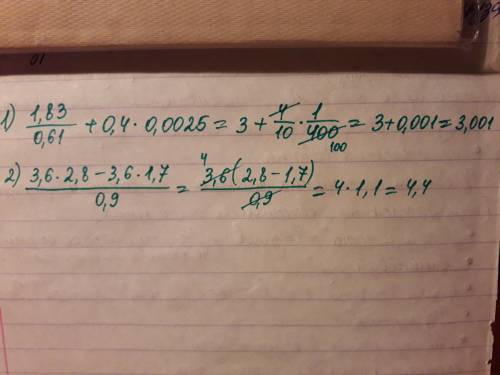 1) 1,83/0,61 + 0,4 · 0,0025 = 3 + 4/10 · 1/400 100 = 3 + 0,001 = 3,001
2) 3,6 · 2,8 − 3,6 · 1,7/0,9 = 4 3,6(2,8 − 1,7)/0,9 = 4 · 1,1 = 4,4